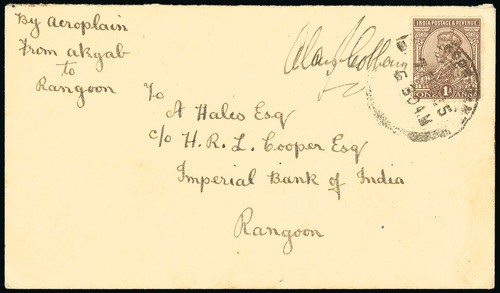 By Aeroplain
From akyab
to
Rangoon
Alan J Cobham
INDIA POSTAGE & REVENUE
1A
To
A Hales Esq
c/o H. R. L. Cooper Esq
Imperial Bank of India
Rangoon